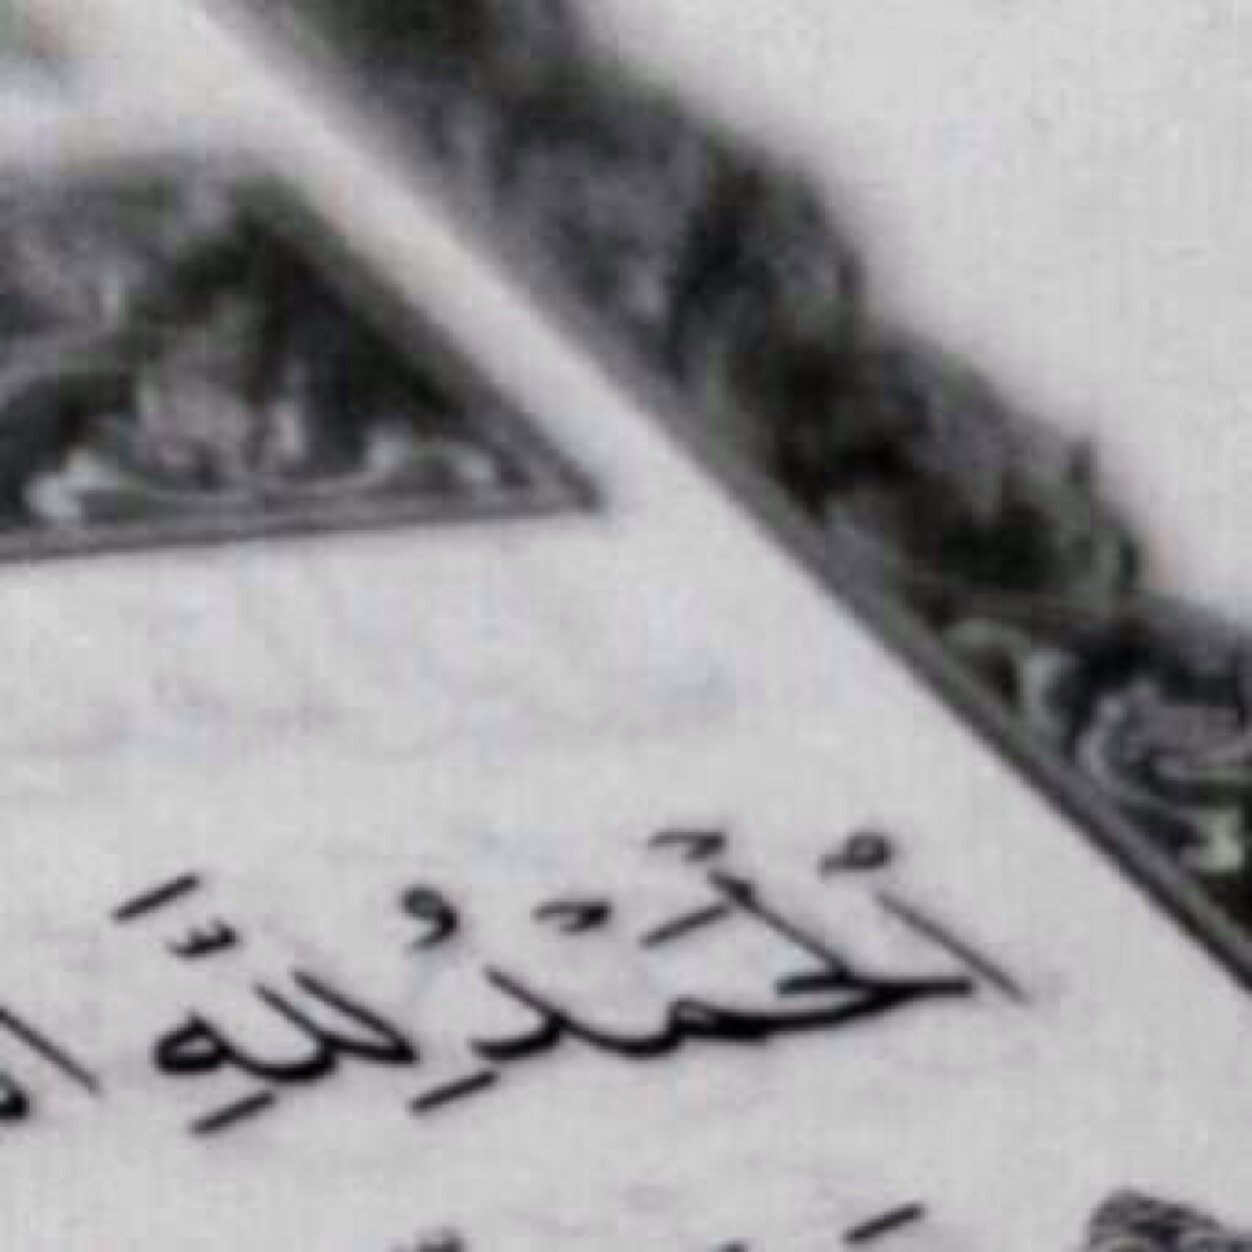 اَ۬لْحَمْدُ لِلَّهِ